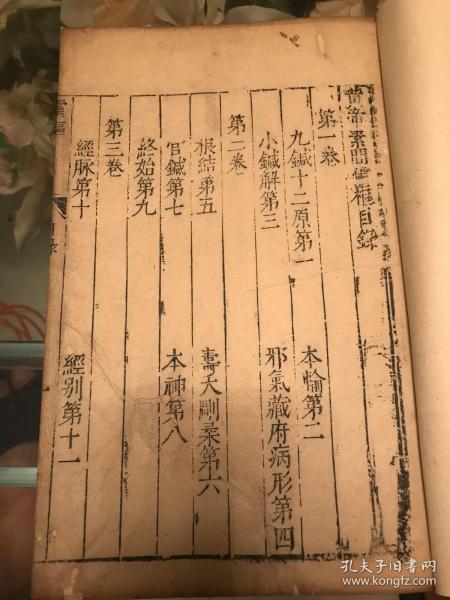 黃帝素問靈樞目錄
第一卷
九鍼十二原第一 本輸第二
小鍼解第三 邪氣藏府病形第四
第二卷
根結第五 壽夭剛柔第六
官鍼第七 本神第八
終始第九
第三卷
經脉第十 經别第十一
靈樞 目录
孔夫子旧书网
www.kongfz.com